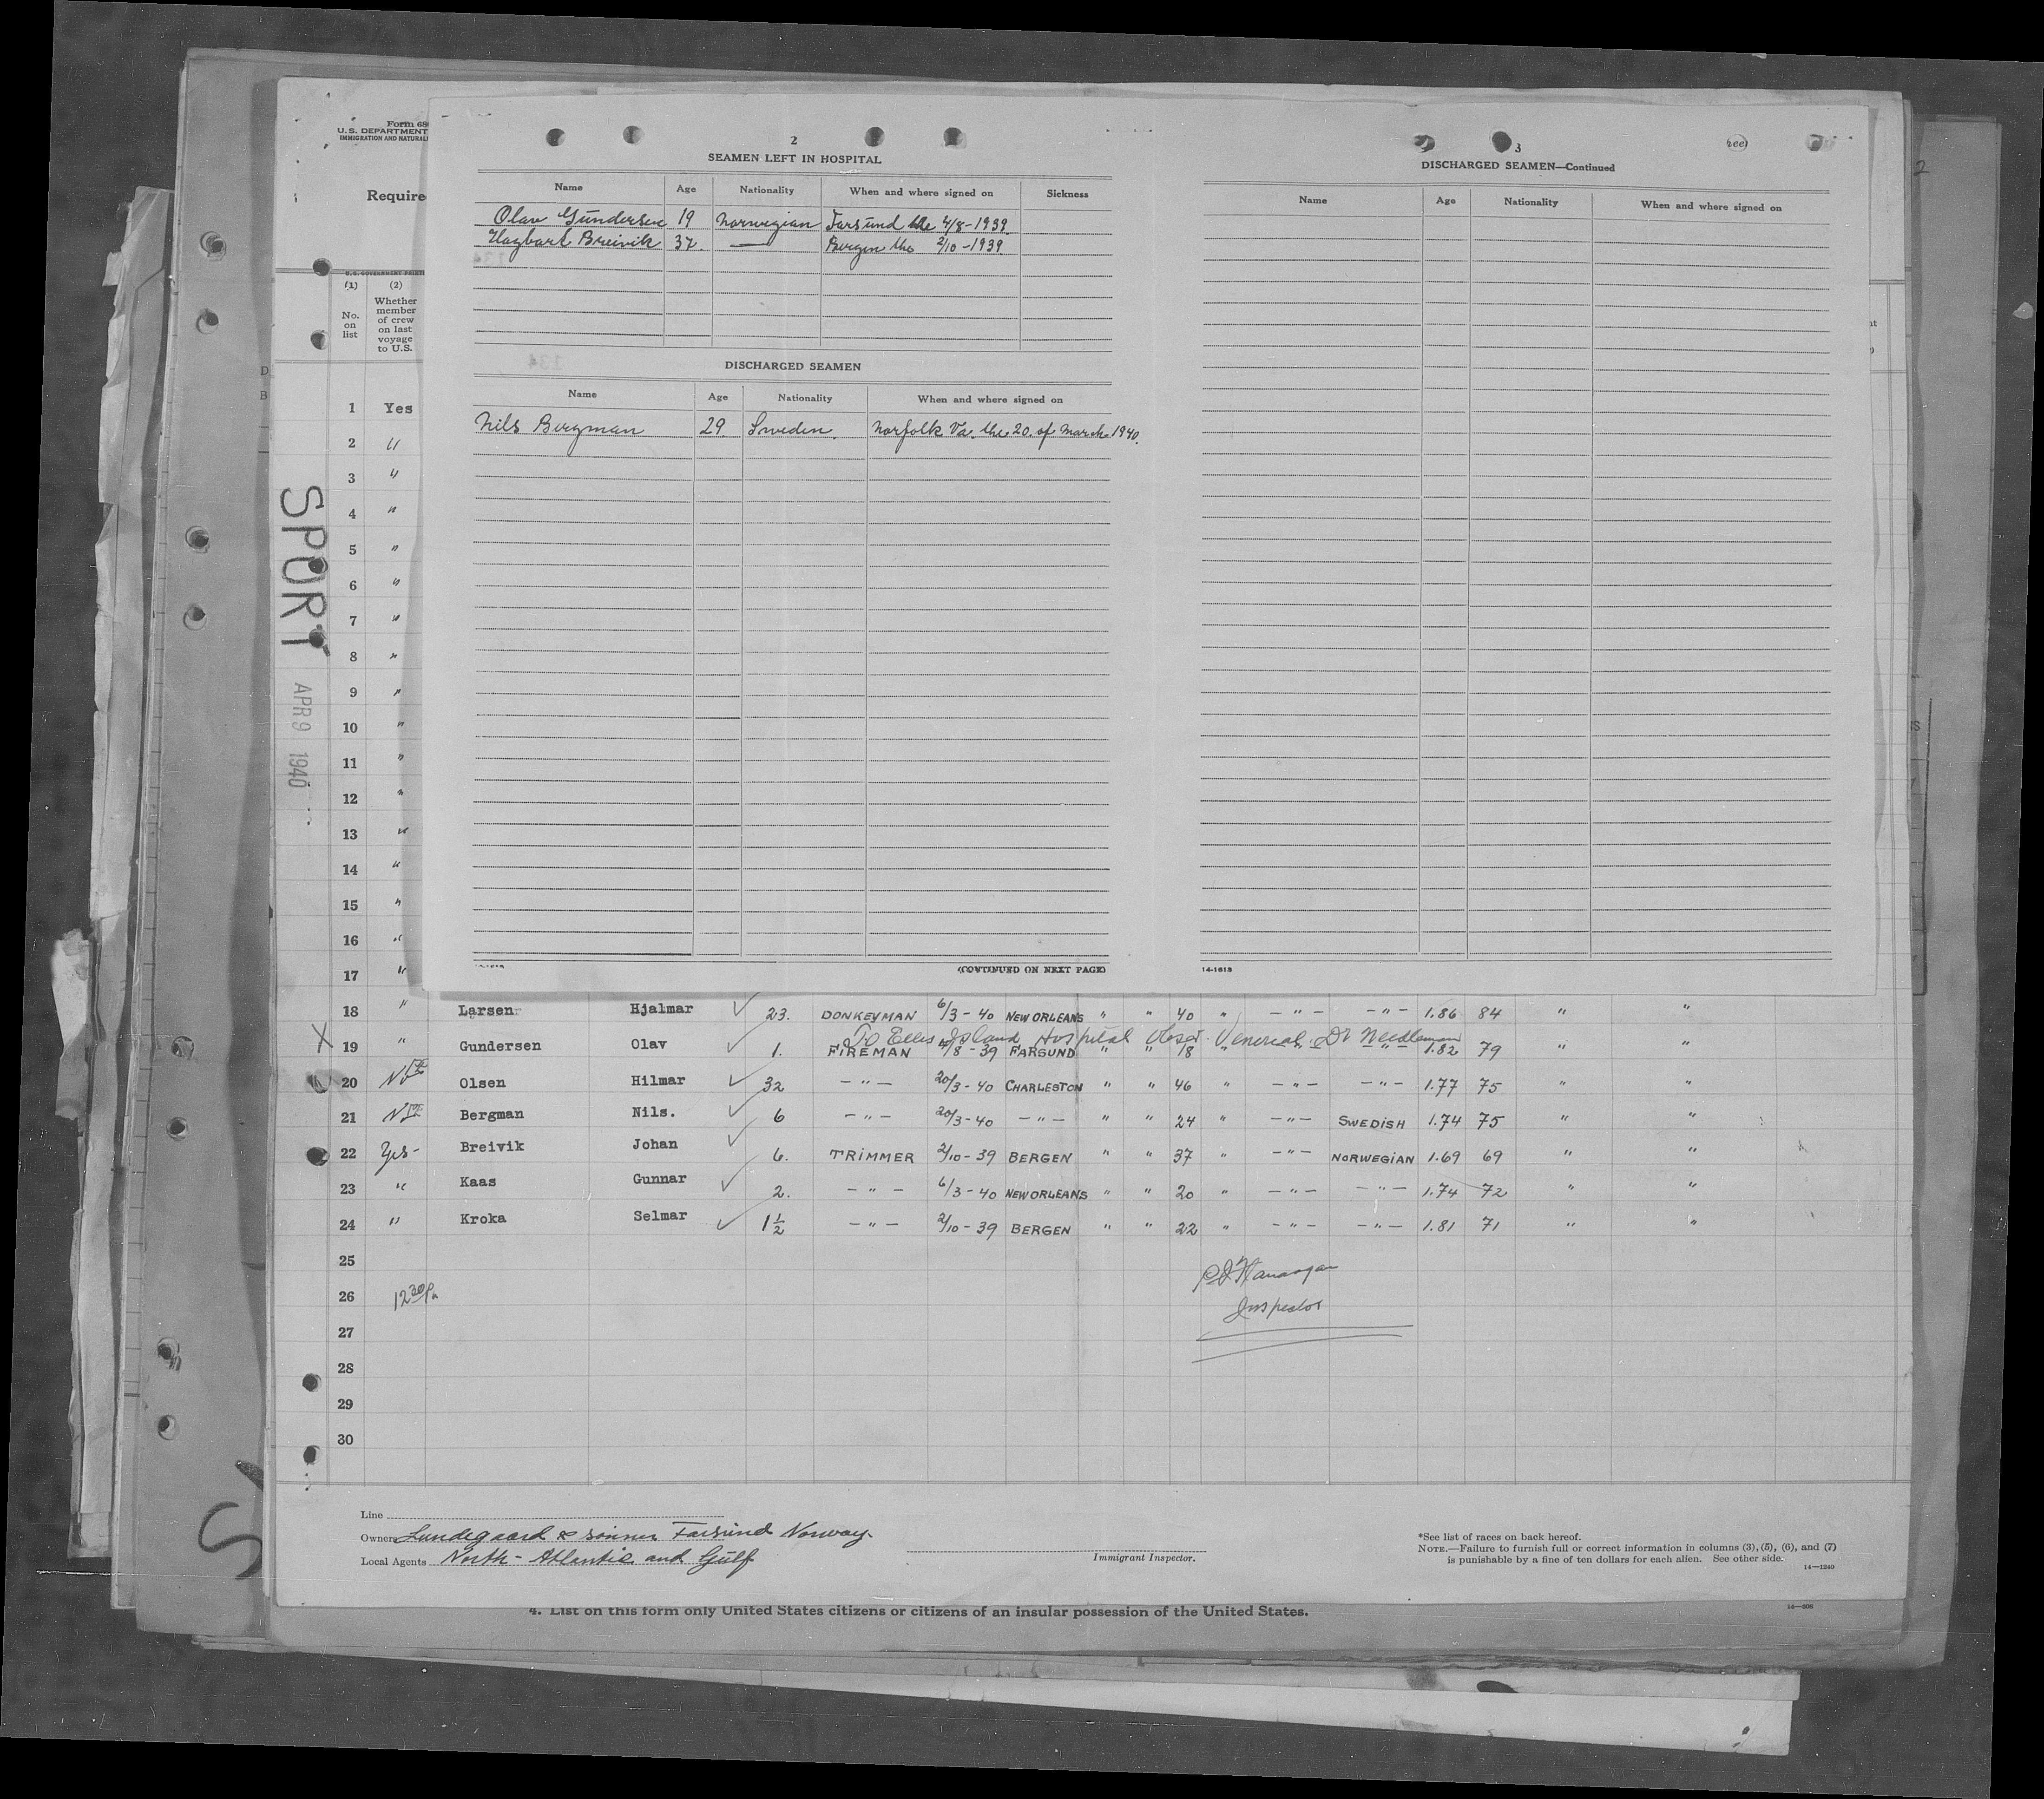 2
SEAMEN LEFT IN HOSPITAL
Name Age Nationality When and where signed on Sickness
Olav Gundersen 19 Norwegian Farsund the 4/8-1939.
Hagbart Breivik 37. — Bergen the 2/10-1939.
DISCHARGED SEAMEN
Name Age Nationality When and where signed on
Nils Bergman 29. Sweden. Norfolk Va. the 20. of March 1940.
(CONTINUED ON NEXT PAGE)
3
DISCHARGED SEAMEN—Continued
Name Age Nationality When and where signed on
14-1613
Form 68
U.S. DEPARTMENT
IMMIGRATION AND NATURAL
Require
U.S. GOVERNMENT PRINT
(1) (2)
No. on list
Whether member of crew on last voyage to U.S.
SPORT
APR 9 1940
1 Yes
2 "
3 "
4 "
5 "
6 "
7 "
8 "
9 "
10 "
11 "
12 "
13 "
14 "
15 "
16 "
17 "
18 " Larsen Hjalmar ✓ 23. DONKEYMAN 6/3-40 NEW ORLEANS " " 40 " -"- -"- 1.86 84 " "
To Ellis Island Hospital Obser. Venereal Dr Needleman
X 19 " Gundersen Olav ✓ 1. FIREMAN 4/8-39 FARSUND " " 18 " -"- -"- 1.82 79 " "
20 No Olsen Hilmar ✓ 32 -"- 20/3-40 CHARLESTON " " 46 " -"- -"- 1.77 75 " "
21 No Bergman Nils. ✓ 6 -"- 20/3-40 -"- " " 24 " -"- SWEDISH 1.74 75 " "
22 Yes- Breivik Johan ✓ 6. TRIMMER 2/10-39 BERGEN " " 37 " -"- NORWEGIAN 1.69 69 " "
23 " Kaas Gunnar ✓ 2. -"- 6/3-40 NEW ORLEANS " " 20 " -"- -"- 1.74 72 " "
24 " Kroka Selmar ✓ 1½ -"- 2/10-39 BERGEN " " 22 " -"- -"- 1.81 71 " "
25
26 12 30 P.
Inspector
27
28
29
30
Line
Owners Lundegaard & sønner Farsund Norway.
Local Agents North-Atlantic and Gulf
Immigrant Inspector.
*See list of races on back hereof.
NOTE.—Failure to furnish full or correct information in columns (3), (5), (6), and (7)
is punishable by a fine of ten dollars for each alien. See other side.
14—1240
4. List on this form only United States citizens or citizens of an insular possession of the United States.